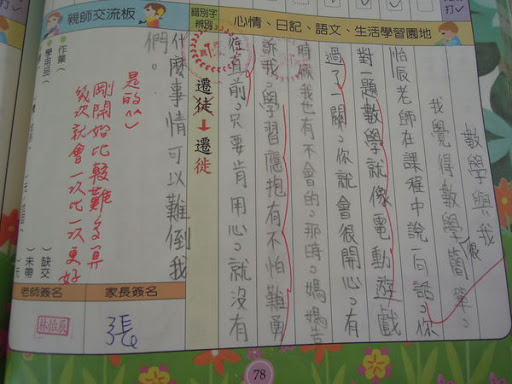 心情、日記、語文、生活學習園地
數學與我
我覺得數學很簡單。
怡辰老師在課程中說一句話。你
對一題數學就像電動遊戲
過了一關。你就會很開心。有
時候我也有不會的。那時。媽媽告
訴我。學習應抱有不怕難勇
往直前。只要肯用心。就沒有
什麼事情可以難倒我
們。
錯別字
辨別
遷徒
↓
遷徙
親師交流板
作業
學用品
缺交
未帶
是的^^
剛開始比較難
幾次就會一次比一次更好
家長簽名
老師簽名
張
林怡辰
78